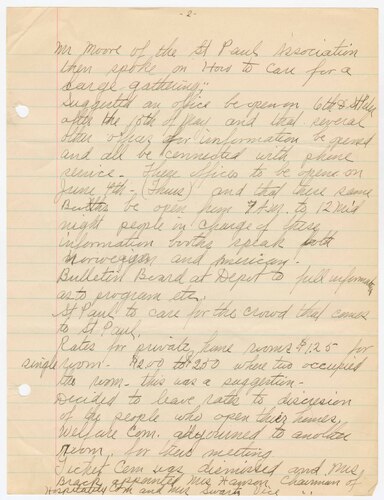 -2-
Mr Moore of the St Paul Association
then spoke on "How to Care for a
Large gathering":
Suggested an office be open on 6th & St Peter
after the 15th of May and that several
other offices for information be opened
and all be connected with phone
service - These offices to be opened on
June 4th - (Thurs) and that these same
Booths be open from 7 A.M. to 12 mid
night people in charge of these
information booths speak both
Norwegian and American.
Bulletin Board at Depot to full information
as to program etc.
St Paul to care for the crowd that comes
to St Paul,
Rates for private home rooms $1.25 for
single room - $2.00 to $2.50 where two occupied
the room - this was a suggestion -
Decided to leave rate to discresion
of the people who open their homes.
Welfare Com. adjourned to another
room, for their meeting
Ticket Com was dismissed and Mrs
Brack appointed Mrs Hanson Chairman of
Hospitality Com and Mrs Swartz Vice " "